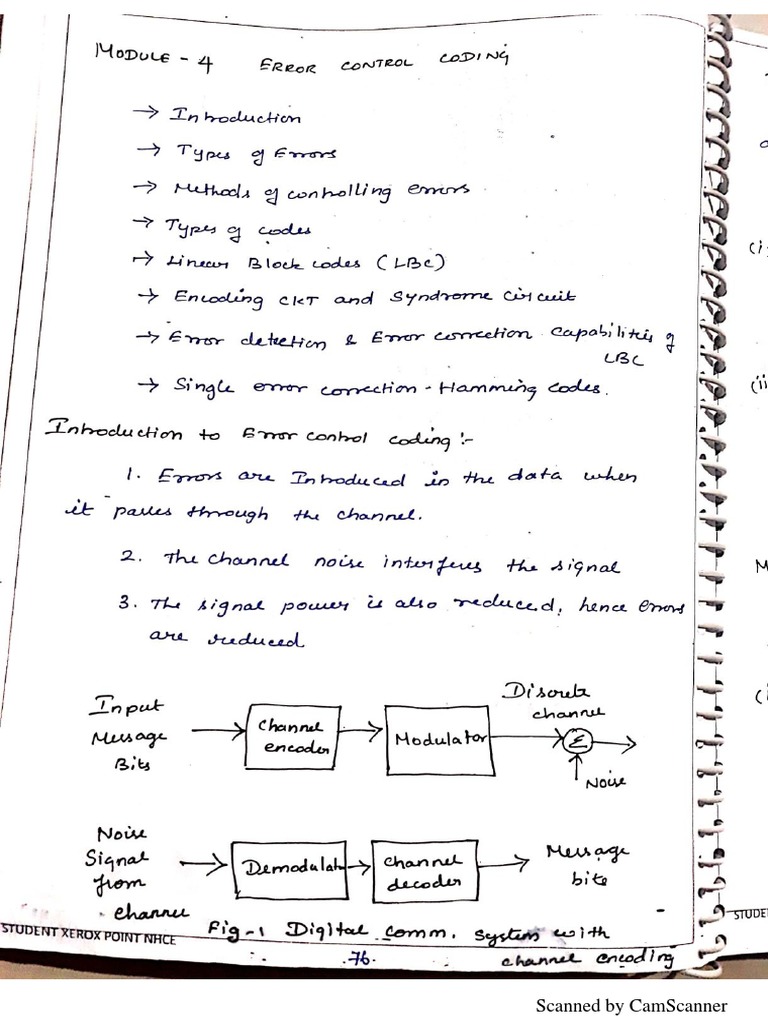 MODULE - 4 ERROR CONTROL CODING
→ Introduction
→ Types of Errors
→ Methods of controlling errors
→ Types of codes
→ Linear Block codes (LBC)
→ Encoding CKT and Syndrome Circuit
→ Error detection & Error correction capabilities of
LBC
→ Single error correction - Hamming codes.
Introduction to Error control coding :-
1. Errors are Introduced in the data when
it passes through the channel.
2. The channel noise interferes the signal
3. The signal power is also reduced, hence errors
are reduced
Input
Message
Bits
Channel
encoder
Modulator
Discrete
channel
Σ
Noise
Noise
Signal
from
channel
Demodulator
Channel
decoder
Message
bits
Fig-1 Digital comm. system with
channel encoding
STUDENT XEROX POINT NHCE
76
STUDE
(i)
(ii
M
(i
Scanned by CamScanner